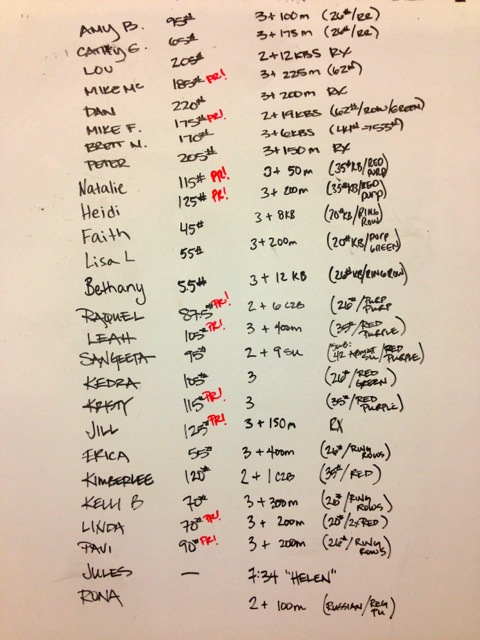 AMY B. 95# 3+100m (26#/RR)
CATHY E. 65# 3+175m (26#/RR)
LOU 205# 2+12KBS RX
MIKE MC 185# PR! 3+225m (62#)
DAN 220# 3+200m RX
MIKE F. 175# PR! 2+19KBS (62#/ROW/GREEN)
BRETT N. 170# 3+6KBS
PETER 205# 3+150m RX
Natalie 115# PR! 3+50m (35#KB/RED PURP)
Heidi 125# PR! 3+200m (35#KB/RED PURP)
Faith 45# 3+8KB (20#KB/RING ROW)
Lisa L 55# 3+200m (20#KB/PURP GREEN)
Bethany 55# 3+12 KB (26#KB/RINGROW)
RAQUEL 87.5# PR! 2+6 C2B (26#/PURP PURP)
LEAH 105# PR! 3+400m (35#/RED PURPLE)
SANGEETA 95# 2+9 SU (SUB: 42 SU/RED PURPLE)
KEDRA 105# 3 (26#/RED GREEN)
KRISTY 115# PR! 3 (35#/RED PURPLE)
JILL 125# PR! 3+150m RX
ERICA 55# 3+400m (26#/RING ROWS)
KIMBERLEE 120# 2+1 C2B (35#/RED)
KELLI B 70# 3+300m (20#/RING ROWS)
LINDA 70# PR! 3+200m (20#/2xRED)
PAVI 90# PR! 3+200m (26#/RING ROWS)
JULES — 7:34 "HELEN"
RONA 2+100m (RUSSIAN/REG PU)